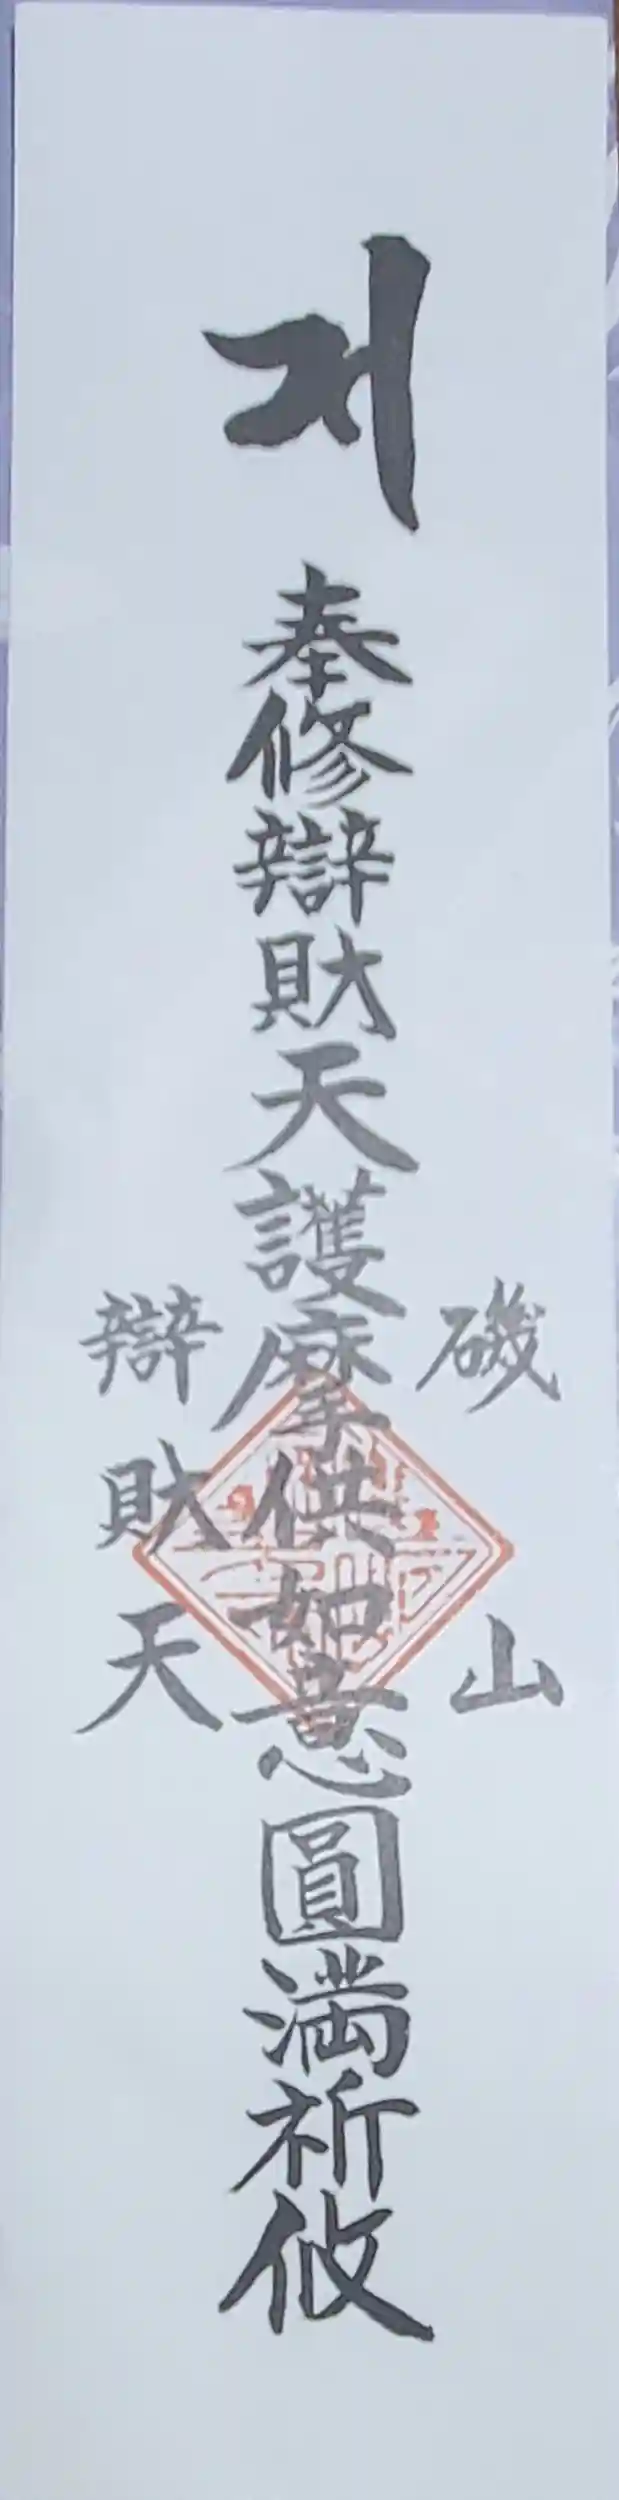 𑖭
奉修辯財天護摩供如意圓満祈攸
磯山
辯財天